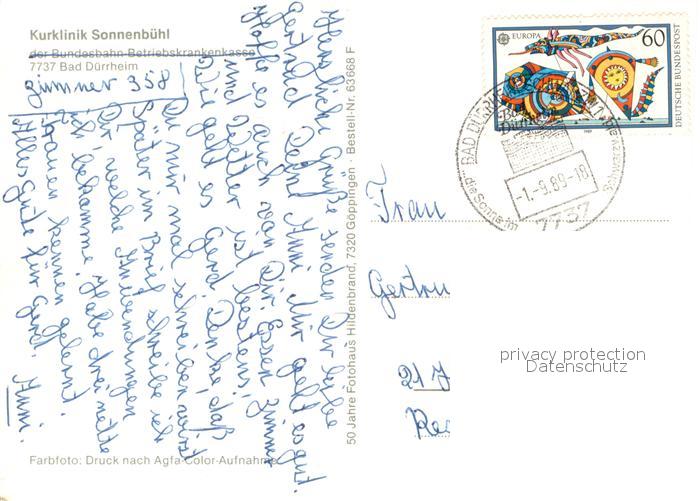 Kurklinik Sonnenbühl
der Bundesbahn-Betriebskrankenkasse
7737 Bad Dürrheim
zimmer 358
Herzliche Grüße senden Dir liebe
Gertrud Deine Anni. Mir geht es gut.
Hoffe es auch von Dir. Essen, Zimmer
und Wetter ist bestens.
Wie geht es Gerd. Denke, daß
Du mir mal schreiben wirst.
Später im Brief schreibe ich
Dir welche Anwendungen
ich bekomme. Habe drei nette
Frauen kennen gelernt.
Alles Gute für Gerd. Anni.
50 Jahre Fotohaus Hildenbrand, 7320 Göppingen · Bestell-Nr. 63668 F
Farbfoto: Druck nach Agfa-Color-Aufnahme
EUROPA
60
DEUTSCHE BUNDESPOST
1989
BAD DÜRRHEIM
-1.-9.89-18
7737
die Sonne im
Frau
Gertru
217
privacy protection
Datenschutz